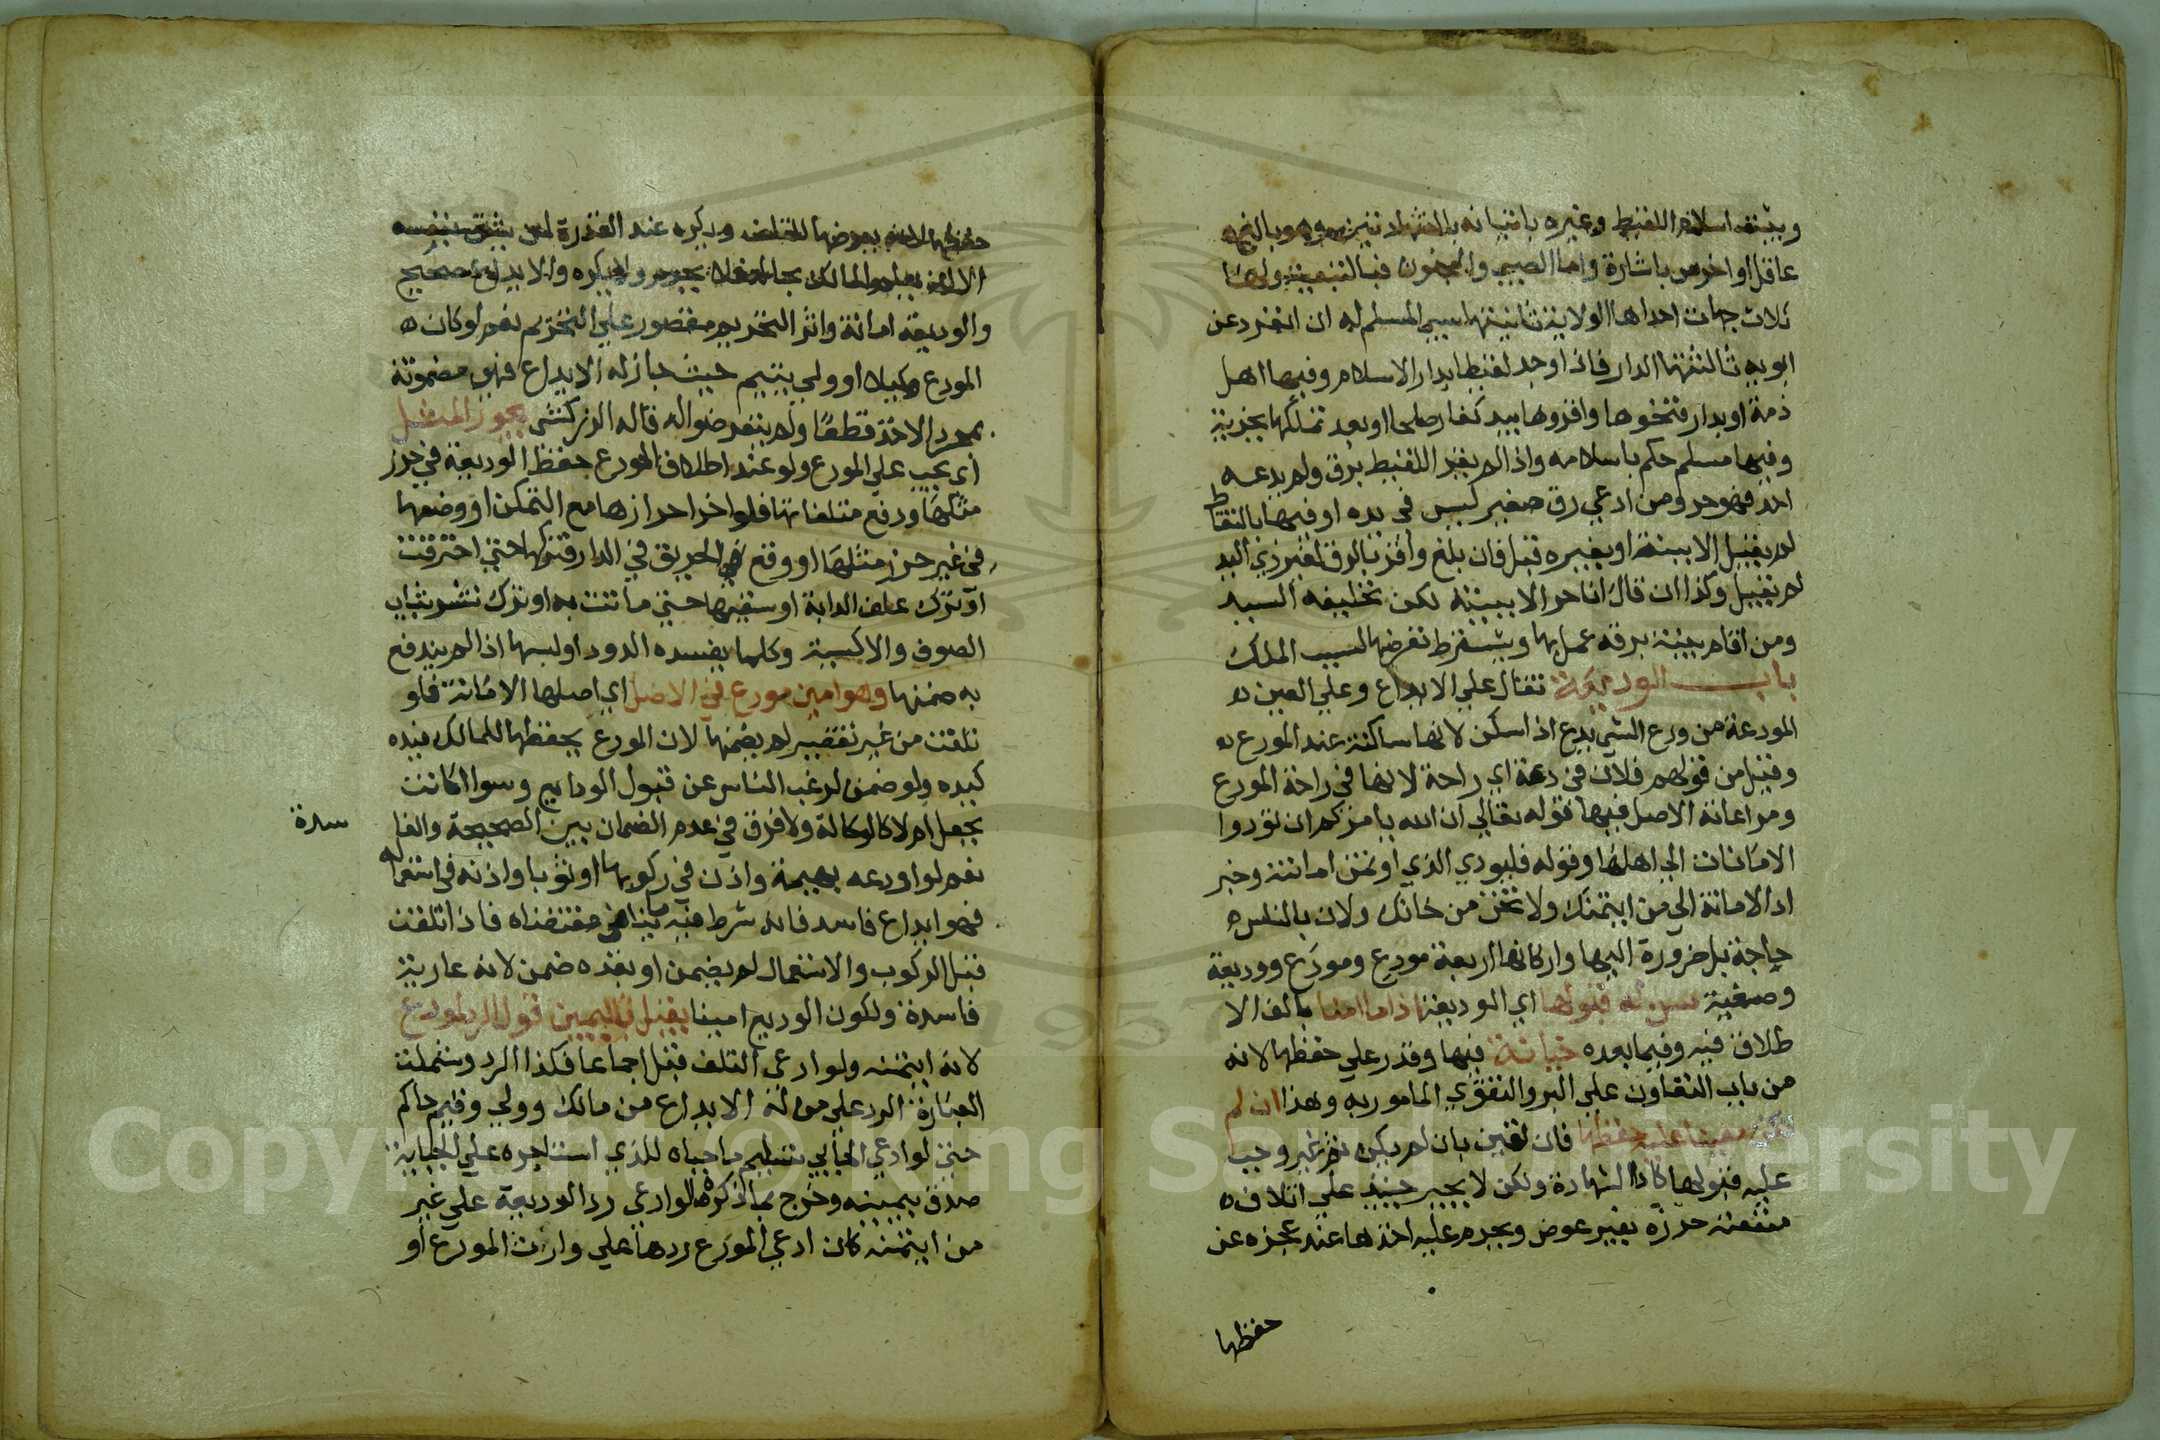 ويثبت اسلام اللقيط وغيره باتيانه بالشهادتين وهو بالغ
عاقل او اخرس باشارة واما الصبي والمجنون فبالتبعية ولها
ثلاث جهات احداها الولاية ثانيتها سبي المسلم له ان انفرد عن
ابويه ثالثتها الدار فاذا وجد لقيط بدار الاسلام وفيها اهل
ذمة او بدار فتحوها واقروها بيد كفار صلحا او بعد تملكها بجزية
وفيها مسلم حكم باسلامه واذا لم يقر اللقيط برق ولم يدعه
احد فهو حر ومن ادعي رق صغير ليس في يده او فيها بالتقاط
لم يقبل الا ببينة او بغيره قبل فان بلغ واقر بالرق لغير ذي اليد
لم يقبل وكذا ان قال انا حر الا ببينة لكن تحليفه السيد
ومن اقام بينة برقه عمل بها ويشترط تعرضها لسبب الملك
باب الوديعة تقال علي الايداع وعلي العين
المودعة من ودع الشي يدع اذا سكن لانها ساكنة عند المودع
وقيل من قولهم فلان في دعة اي راحة لانها في راحة المودع
ومراعاته الاصل فيها قوله تعالي ان الله يامركم ان تؤدوا
الامانات الي اهلها وقوله فليودي الذي اوتمن امانته وخبر
اد الامانة الي من ايتمنك ولا تخن من خانك ولان بالناس
حاجة بل ضرورة اليها واركانها اربعة مودع ومودَع ووديعة
وصيغة سن له قبولها اي الوديعة اذا ما امنا بالف الا
طلاق فيه وفيما بعده خيانة فيها وقدر علي حفظها لانه
من باب التعاون علي البر والتقوي المامور به وهذا ان لم
يكن معينا عليه حفظها فان تعين بان لم يكن ثم غيره وجب
عليه قبولها كاداء الشهادة ولكن لا يجبر حينئذ علي اتلاف
منفعة حرزه بغير عوض ويحرم عليه اخذها عند عجزه عن
حفظها
حفظها لانه يعرضها للتلف ويكره عند القدرة لمن يثق بنفسه
الا ان يعلم المالك بحاله فلا يحرم ولا يكره والايداع صحيح
والوديعة امانة واثر التحريم مقصور علي التحريم نعم لو كان
المودع وكيلا او ولي يتيم حيث جاز له الايداع فهي مضمونة
بمجرد الاخذ قطعا ولم يتعرضوا له قاله الزركشي بحرز المثل
اي يجب علي المودع ولو عند اطلاق المودع حفظ الوديعة في حرز
مثلها ودفع متلفاتها فلو اخر احرازها مع التمكن او وضعها
في غير حرز مثلها او وقع الحريق في الدار فتركها حتي احترقت
او ترك علف الدابة او سقيها حتي ماتت به او ترك نشر ثياب
الصوف والاكسية وكلما يفسده الدود او لبسها اذا لم يندفع
به ضمنها وهو امين مودع في الاصل اي اصلها الامانة فلو
تلفت من غير تقصير لم يضمنها لان المودع يحفظها للمالك فيده
كيده ولو ضمن لرغب الناس عن قبول الودايع وسوا اكانت
بجعل ام لا كالوكالة ولا فرق في عدم الضمان بين الصحيحة والفا
سدة
نعم لو اودعه بهيمة واذن في ركوبها او ثوبا واذنه في استعماله
فهو ايداع فاسد فانه شرط فيه ما ينافي مقتضاه فاذا تلفت
قبل الركوب والاستعمال لم يضمن او بعده ضمن لانه عارية
فاسدة ولكون الوديع امينا يقبل باليمين قول الرد لمودع
لانه ايتمنه ولو ادعي التلف قبل اجماعا فكذا الرد وشملت
العبارة الرد علي من له الايداع من مالك وولي وقيم حاكم
حتي لو ادعي الجابي تسليم ما جباه للذي استاجره علي الجباية
صدق بيمينه وخرج بما ذكره ما لو ادعي رد الوديعة علي غير
من ايتمنه كان ادعي المودع ردها علي وارث المودع او